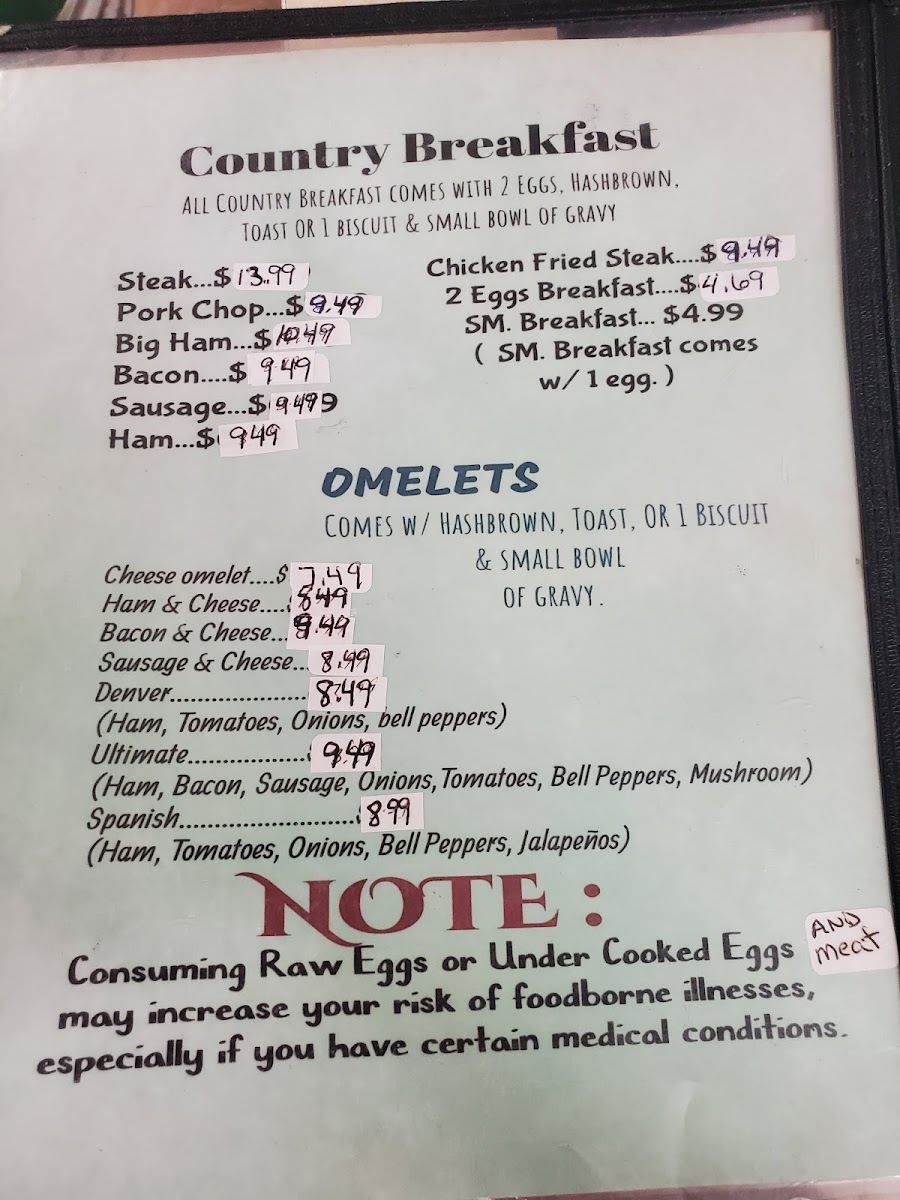 Country Breakfast
ALL COUNTRY BREAKFAST COMES WITH 2 EGGS, HASHBROWN,
TOAST OR 1 BISCUIT & SMALL BOWL OF GRAVY
Steak...$13.99
Pork Chop...$9.49
Big Ham...$10.49
Bacon....$ 9.49
Sausage...$9.499
Ham...$ 9.49
Chicken Fried Steak....$9.49
2 Eggs Breakfast....$4.69
SM. Breakfast... $4.99
( SM. Breakfast comes
w/ 1 egg. )
OMELETS
COMES W/ HASHBROWN, TOAST, OR 1 BISCUIT
& SMALL BOWL
OF GRAVY.
Cheese omelet....$ 7.49
Ham & Cheese.... 8.49
Bacon & Cheese...
Sausage & Cheese... 8.49
Denver..................... 8.49
(Ham, Tomatoes, Onions, bell peppers)
Ultimate................... 9.49
(Ham, Bacon, Sausage, Onions, Tomatoes, Bell Peppers, Mushroom)
Spanish............................ 8.99
(Ham, Tomatoes, Onions, Bell Peppers, Jalapeños)
NOTE :
Consuming Raw Eggs or Under Cooked Eggs AND meat
may increase your risk of foodborne illnesses,
especially if you have certain medical conditions.